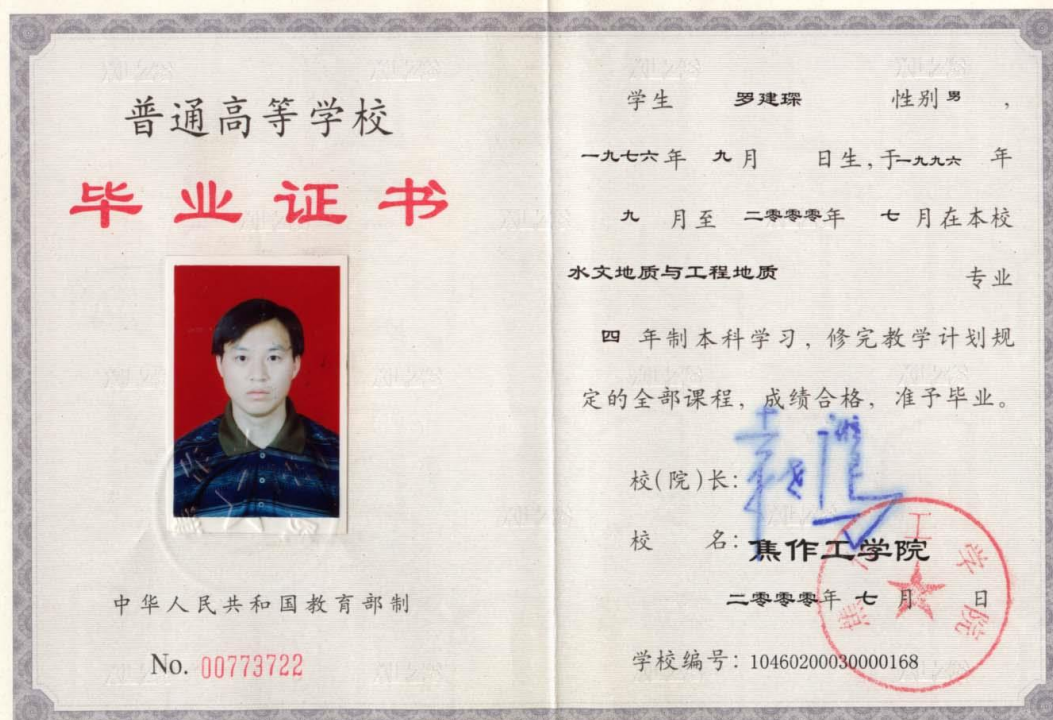 普通高等学校
毕业证书
中华人民共和国教育部制
No. 00773722
学生 罗建琛 性别 男 ，
一九七六年 九月 日生，于一九九六 年
九 月至 二零零零年 七 月在本校
水文地质与工程地质 专业
四 年制本科学习，修完教学计划规
定的全部课程，成绩合格，准予毕业。
校(院)长：
校 名：焦作工学院
二零零零年 七 月 日
学校编号：10460200030000168